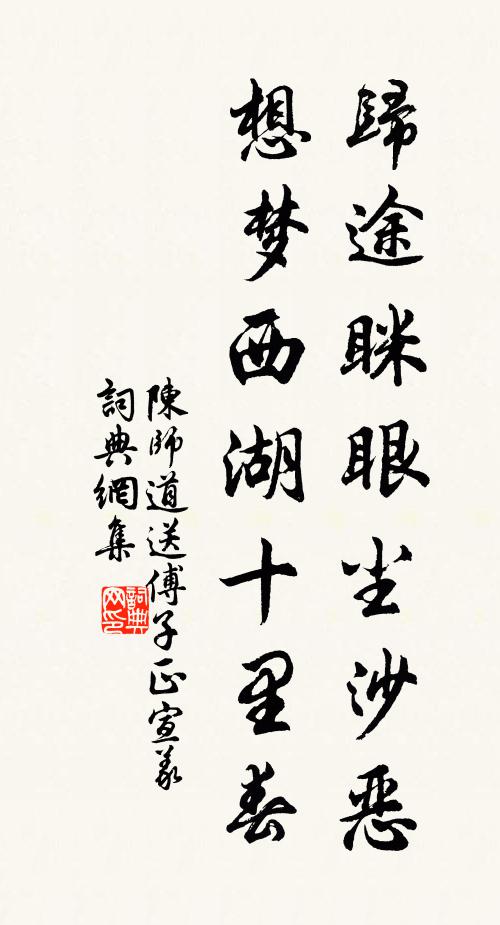 歸途眯眼尘沙惡
想梦西湖十里春
陳師道送傅子正宣義
詞典網集
詞典网印